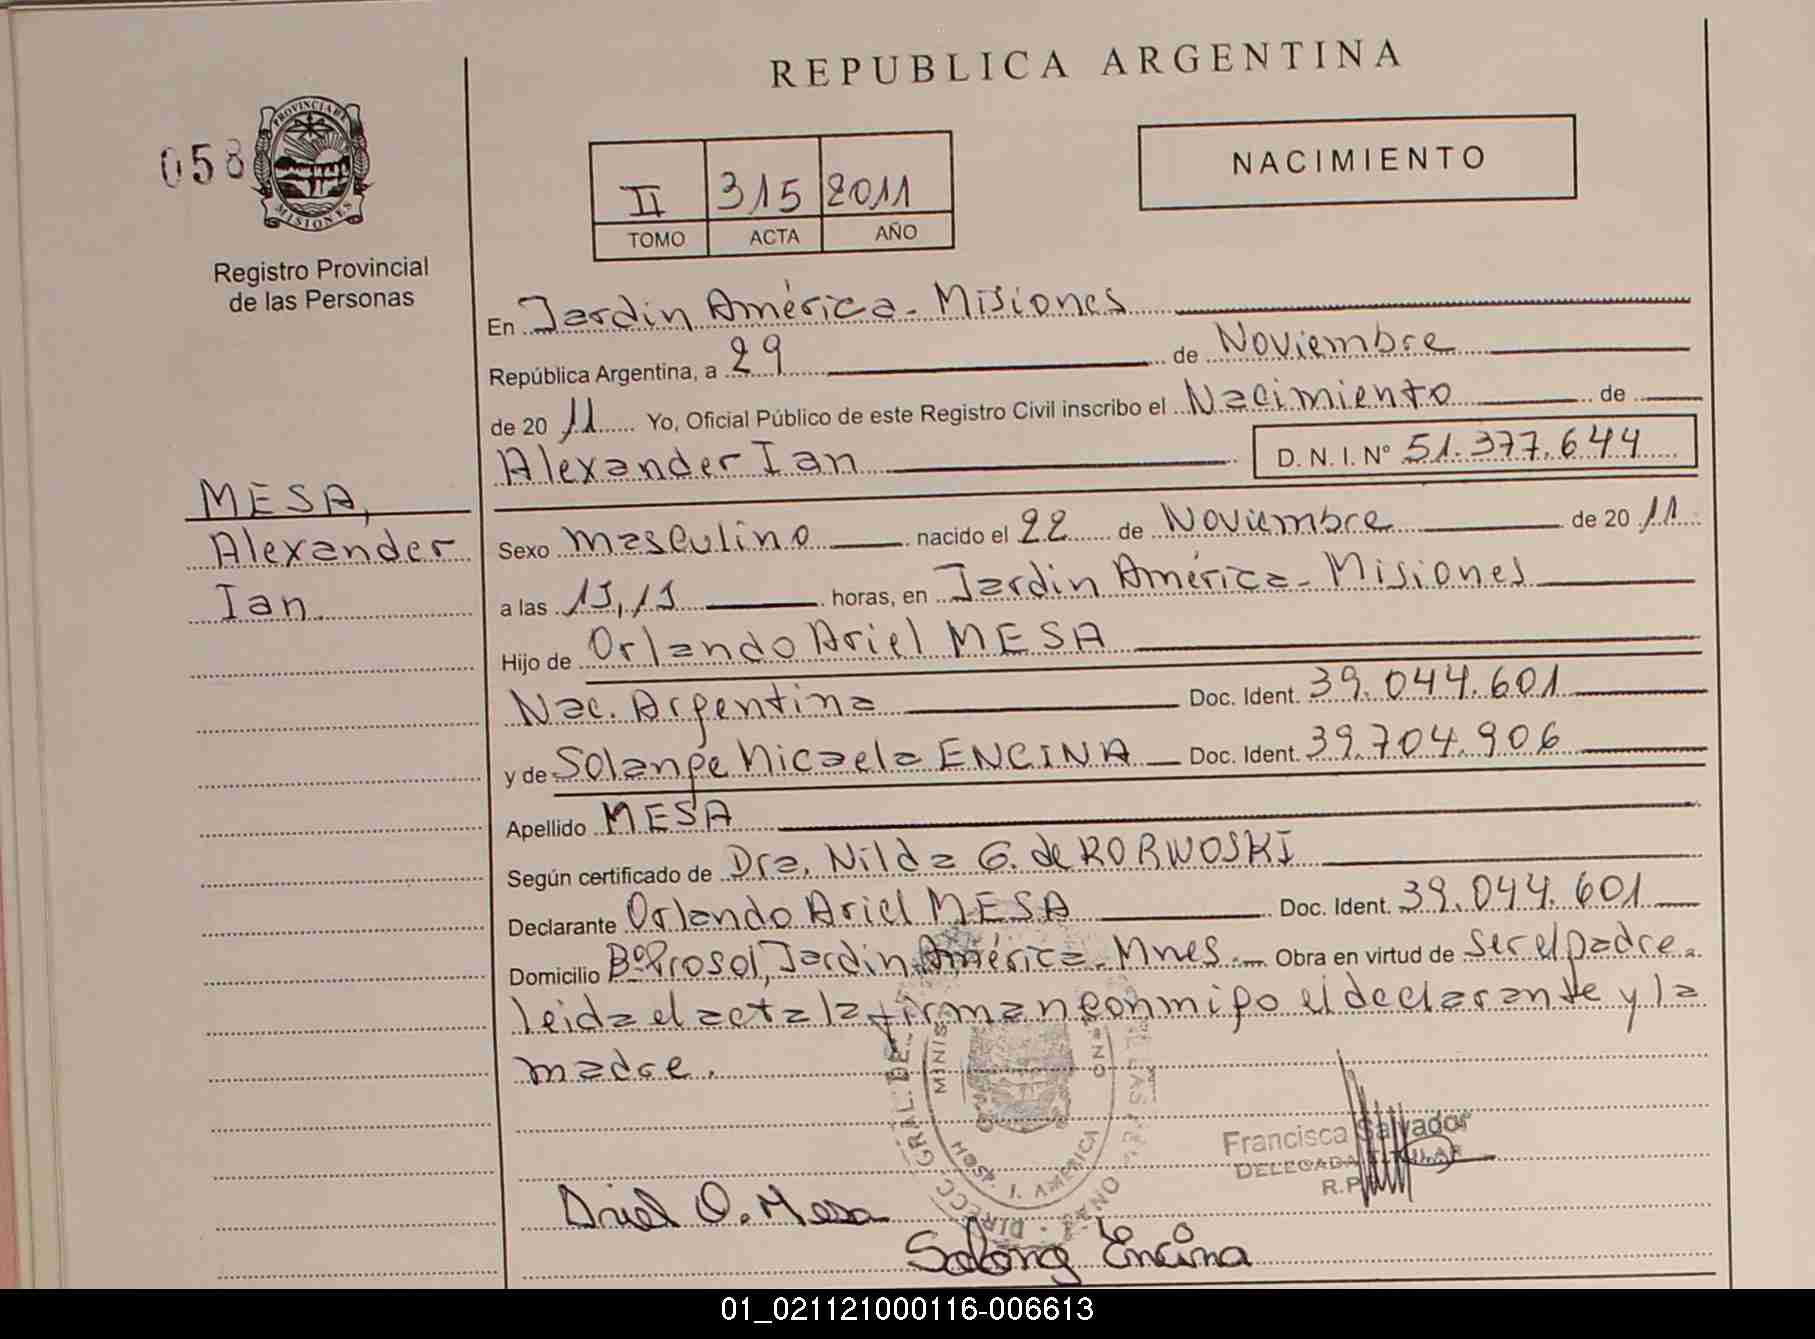 REPUBLICA ARGENTINA
058
PROVINCIA DE
MISIONES
Registro Provincial
de las Personas
II 315 2011
TOMO ACTA AÑO
NACIMIENTO
En Jardin América - Misiones
República Argentina, a 29 de Noviembre
de 20 11 Yo, Oficial Público de este Registro Civil inscribo el Nacimiento de
Alexander Ian D. N. I. Nº 51.377.644
MESA,
Alexander
Ian
Sexo masculino nacido el 22 de Noviembre de 20 11
a las horas, en Jardin América - Misiones
Hijo de Orlando Ariel MESA
Nac. Argentina Doc. Ident. 39.044.601
y de Solange Micaela ENCINA Doc. Ident. 39.704.906
Apellido MESA
Según certificado de Dra. Nilda G. de
Declarante Orlando Ariel MESA Doc. Ident. 39.044.601
Domicilio Bº Prosol, Jardin América - Mnes. Obra en virtud de ser el padre.
leida el acta la firman conmigo el declarante y la
madre.
Francisca Salvador
DELEGADA TITULAR
R.P.
Ariel O. Mesa
Solang Encina
01_021121000116-006613